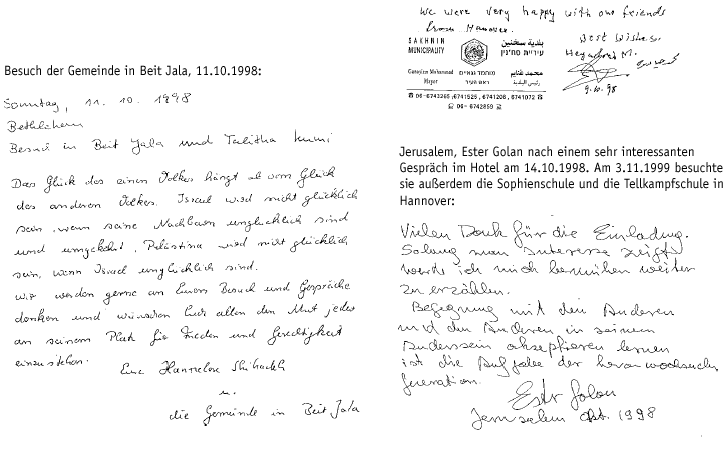 Besuch der Gemeinde in Beit Jala, 11.10.1998:
Sonntag, 11. 10. 1998
Bethlehem
Besuch in Beit Jala und Talitha Kumi
Das Glück des einen Volkes hängt ab vom Glück
des anderen Volkes. Israel wird nicht glücklich
sein, wenn seine Nachbarn unglücklich sind
und umgekehrt, Palästina wird nicht glücklich
sein, wenn Israel unglücklich sind.
Wir werden gerne an Euren Besuch und Gespräche
denken und wünschen Euch allen den Mut, jedes
an seinem Platz für Frieden und Gerechtigkeit
einzustehen.
Eure Hannelore Shihadeh
u.
die Gemeinde in Beit Jala
We were very happy with our friends
from Hannover.
SAKHNIN
MUNICIPALITY
بلدية سخنين
עיריית סח'נין
Ganayim Mohammad
Mayor
محمد غنايم
رئيس البلدية
מוחמד גנאים
ראש העיר
06-6743265, 6741525, 6741208, 6741072
06-6742859
Best Wishes.
9.10.98
Jerusalem, Ester Golan nach einem sehr interessanten
Gespräch im Hotel am 14.10.1998. Am 3.11.1999 besuchte
sie außerdem die Sophienschule und die Tellkampfschule in
Hannover:
Vielen Dank für die Einladung.
Solang man Interesse zeigt
werde ich mich bemühen weiter
zu erzählen.
Begegnung mit dem Anderen
und den Anderen in seinem
Anderssein akzeptieren lernen
ist die Aufgabe der heranwachsenden
Generation.
Ester Golan
Jerusalem Okt. 1998